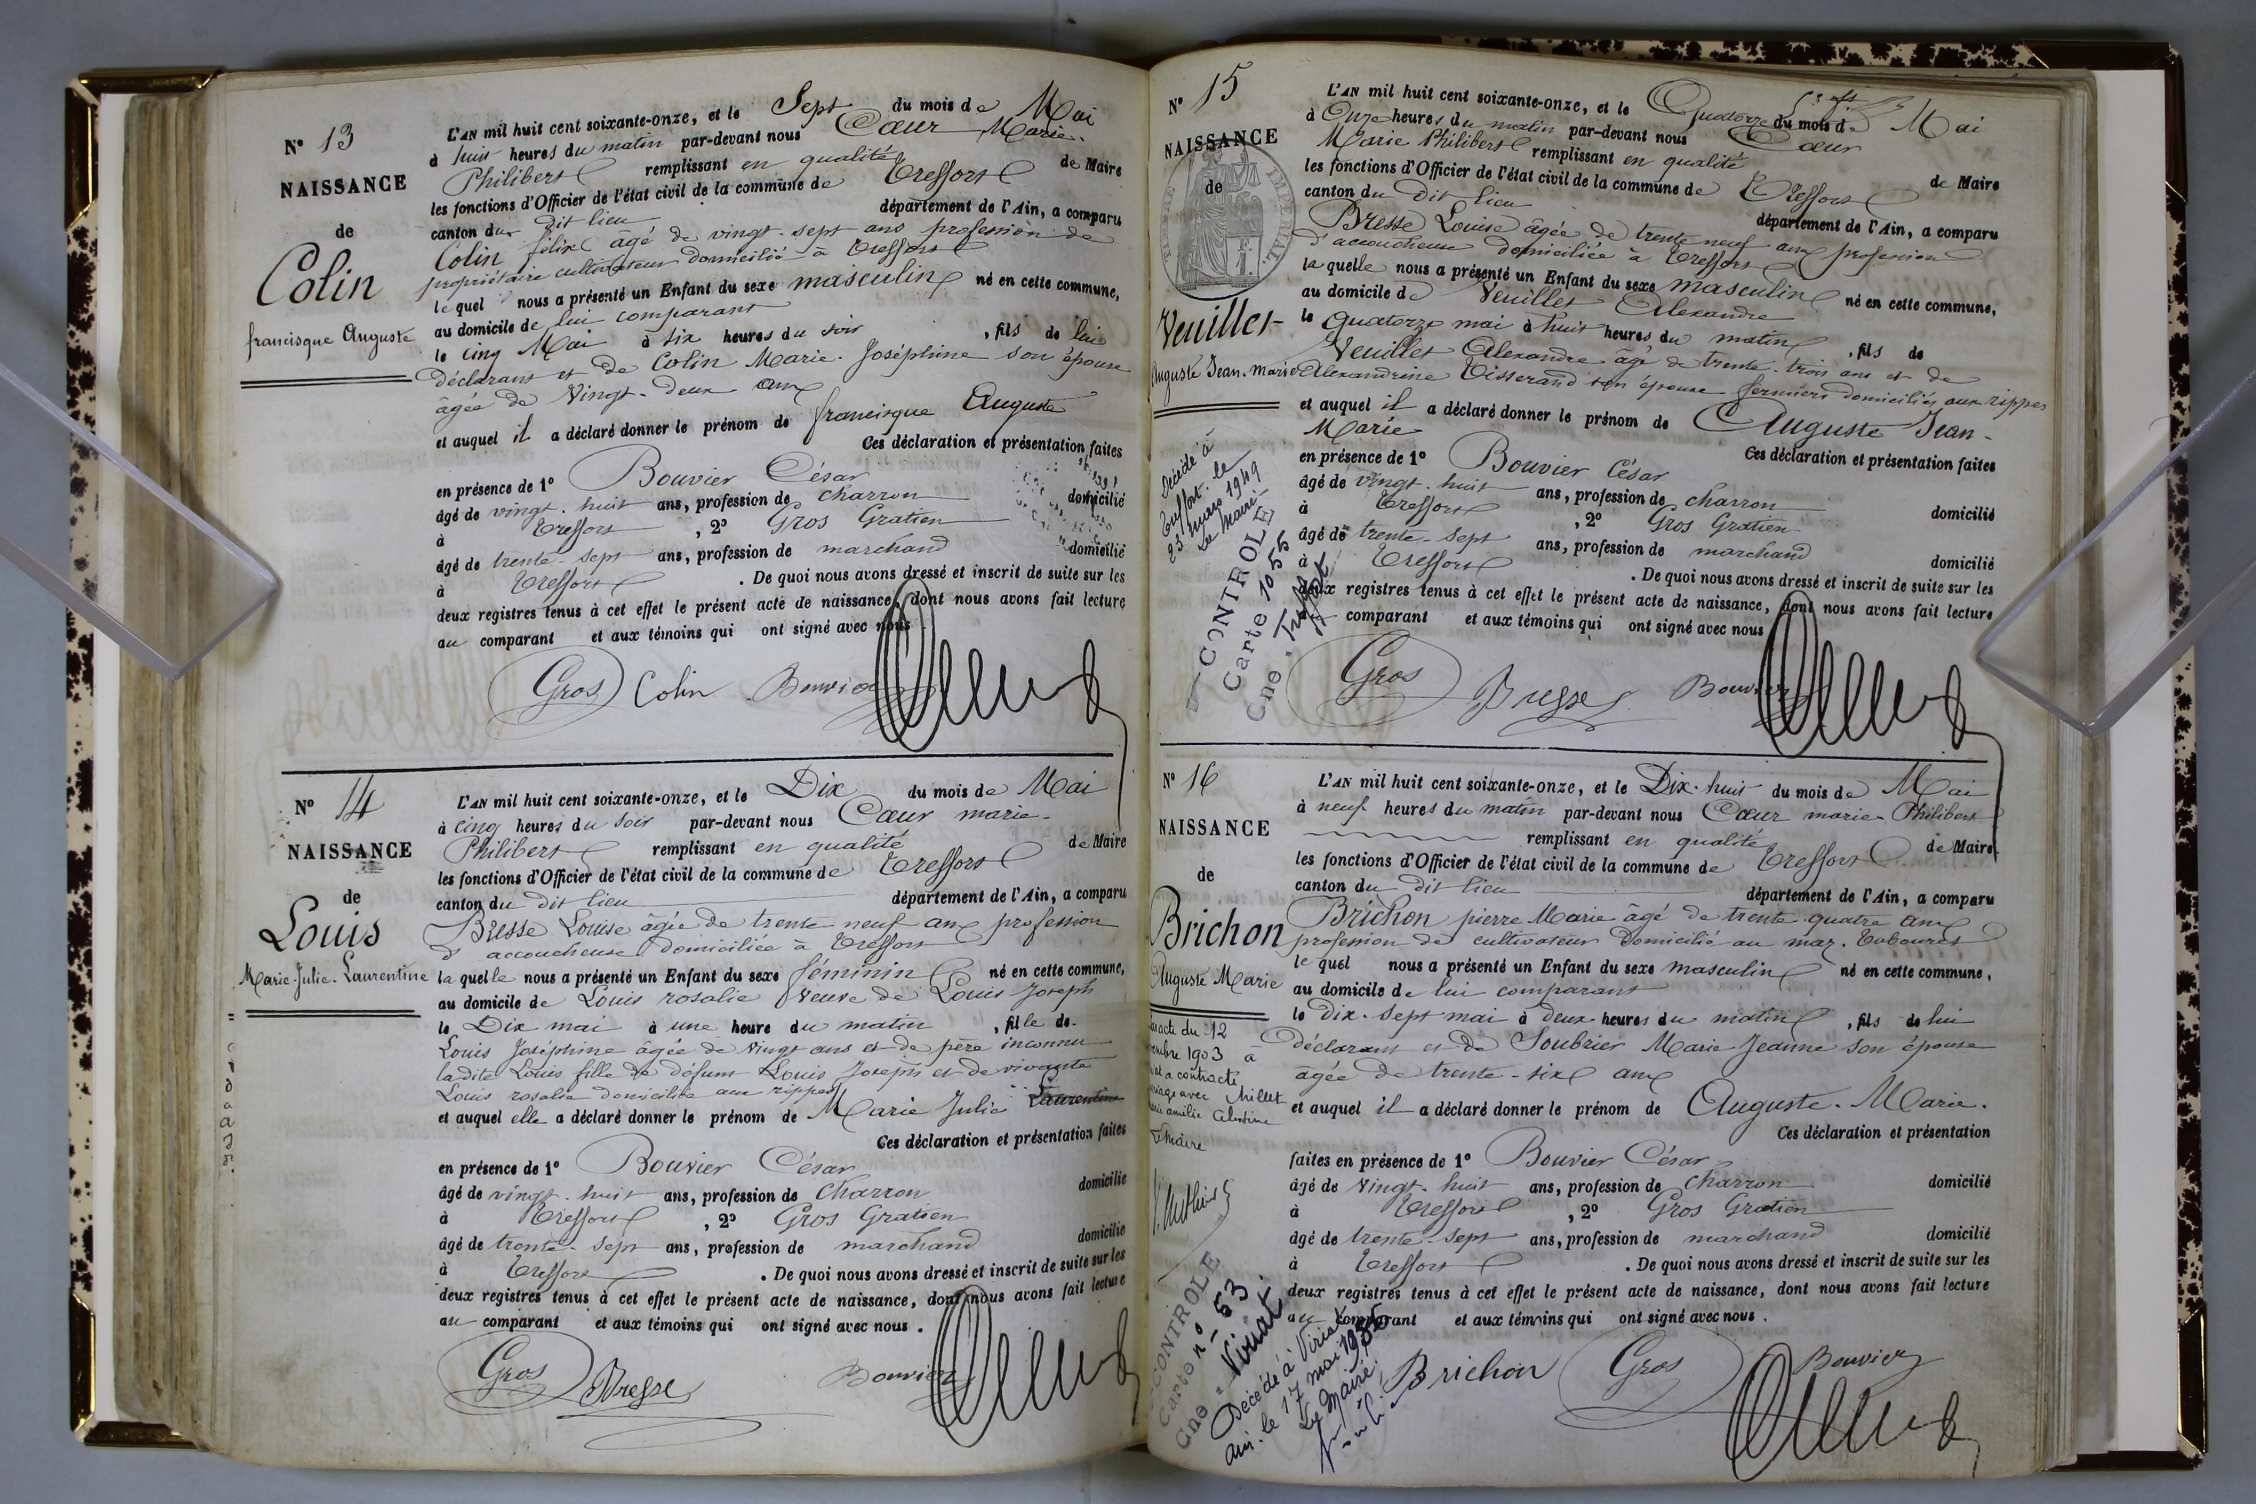 N° 13
NAISSANCE
de
Colin
francisque Auguste
L'AN mil huit cent soixante-onze, et le Sept du mois de Mai
à huit heures du matin par-devant nous Cœur Marie-
Philibert remplissant en qualité de Maire
les fonctions d'Officier de l'état civil de la commune de Treffort
canton du dit lieu département de l'Ain, a comparu
Colin félix âgé de vingt-sept ans profession de
propriétaire cultivateur domicilié à Treffort
le quel nous a présenté un Enfant du sexe masculin né en cette commune,
au domicile de lui comparant
le cinq Mai à six heures du soir, fils de lui
déclarant et de Colin Marie-Joséphine son épouse
âgée de Vingt-deux ans
et auquel il a déclaré donner le prénom de francisque Auguste
Ces déclaration et présentation faites
en présence de 1° Bouvier César
âgé de vingt-huit ans, profession de charron domicilié
à Treffort, 2° Gros Gratien
âgé de trente-sept ans, profession de marchand domicilié
à Treffort. De quoi nous avons dressé et inscrit de suite sur les
deux registres tenus à cet effet le présent acte de naissance, dont nous avons fait lecture
au comparant et aux témoins qui ont signé avec nous
Gros Colin Bouvier
N° 14
NAISSANCE
de
Louis
Marie-Julie-Laurentine
L'AN mil huit cent soixante-onze, et le Dix du mois de Mai
à cinq heures du soir par-devant nous Cœur marie-
Philibert remplissant en qualité de Maire
les fonctions d'Officier de l'état civil de la commune de Treffort
canton du dit lieu département de l'Ain, a comparu
Bresse Louise âgée de trente neuf ans profession
d'accoucheuse domiciliée à Treffort
la quelle nous a présenté un Enfant du sexe féminin né en cette commune,
au domicile de Louis rosalie veuve de Louis Joseph
le Dix mai à une heure du matin, fille de
Louis Joséphine âgée de vingt ans et de père inconnu
la dite Louis fille de défunt Louis Joseph et de vivante
Louis rosalie domiciliée aux rippes
et auquel elle a déclaré donner le prénom de Marie Julie Laurentine
Ces déclaration et présentation faites
en présence de 1° Bouvier César
âgé de vingt-huit ans, profession de charron domicilié
à Treffort, 2° Gros Gratien
âgé de trente-sept ans, profession de marchand domicilié
à Treffort. De quoi nous avons dressé et inscrit de suite sur les
deux registres tenus à cet effet le présent acte de naissance, dont nous avons fait lecture
au comparant et aux témoins qui ont signé avec nous.
Gros Bresse Bouvier
N° 15
NAISSANCE
de
TIMBRE IMPERIAL
Veuillet
Auguste Jean-Marie
Décédé à
Treffort le
23 mars 1949
Le Maire
CONTROLE
Carte 1055
Cne Treffort
L'AN mil huit cent soixante-onze, et le Quatorze du mois de Mai
à Onze heures du matin par-devant nous Cœur
Marie Philibert remplissant en qualité de Maire
les fonctions d'Officier de l'état civil de la commune de Treffort
canton du dit lieu département de l'Ain, a comparu
Bresse Louise âgée de trente neuf ans profession
d'accoucheuse domiciliée à Treffort
la quelle nous a présenté un Enfant du sexe masculin né en cette commune,
au domicile de Veuillet Alexandre
le Quatorze mai à huit heures du matin, fils de
Veuillet Alexandre âgé de trente-trois ans et de
Alexandrine Tisserand son épouse fermiers domiciliés aux rippes
et auquel il a déclaré donner le prénom de Auguste Jean-
Marie
Ces déclaration et présentation faites
en présence de 1° Bouvier César
âgé de vingt-huit ans, profession de charron domicilié
à Treffort, 2° Gros Gratien
âgé de trente-sept ans, profession de marchand domicilié
à Treffort. De quoi nous avons dressé et inscrit de suite sur les
deux registres tenus à cet effet le présent acte de naissance, dont nous avons fait lecture
comparant et aux témoins qui ont signé avec nous
Gros Bresse Bouvier
N° 16
NAISSANCE
de
Brichon
Auguste Marie
acte du 12
1903 à
a contracté
avec Millet
amélie Célestine
CONTROLE
Carte n° 53
Cne Viriat
Décédé à Viriat
Ain le 17 mai 1956
Le Maire
L'AN mil huit cent soixante-onze, et le Dix-huit du mois de Mai
à neuf heures du matin par-devant nous Cœur marie-Philibert
remplissant en qualité de Maire
les fonctions d'Officier de l'état civil de la commune de Treffort
canton du dit lieu département de l'Ain, a comparu
Brichon pierre Marie âgé de trente quatre ans
profession de cultivateur domicilié au
le quel nous a présenté un Enfant du sexe masculin né en cette commune,
au domicile de lui comparant
le dix-sept mai à deux heures du matin, fils de lui
déclarant et de Soubrier Marie Jeanne son épouse
âgée de trente-six ans
et auquel il a déclaré donner le prénom de Auguste-Marie.
Ces déclaration et présentation
faites en présence de 1° Bouvier César
âgé de vingt-huit ans, profession de charron domicilié
à Treffort, 2° Gros Gratien
âgé de trente-sept ans, profession de marchand domicilié
à Treffort. De quoi nous avons dressé et inscrit de suite sur les
deux registres tenus à cet effet le présent acte de naissance, dont nous avons fait lecture
au comparant et aux témoins qui ont signé avec nous.
Brichon Gros Bouvier